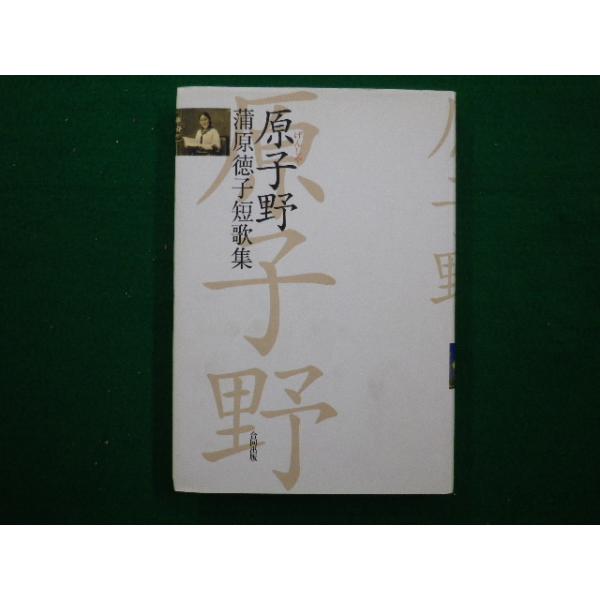 原子野
げんしや
蒲原徳子短歌集
原子野
合同出版
原子野